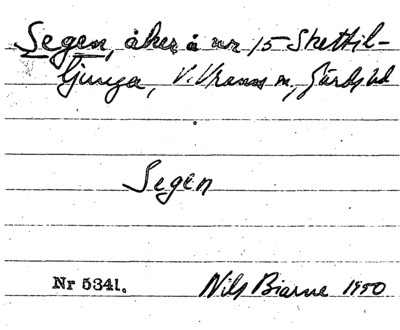 Segen, åker å nr 15 Skettil-
ljunga, V. Vrams sn, Gärds hd
Segen
Nr 5341. Nils Biarne 1950